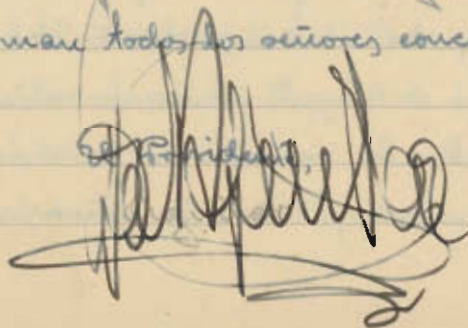 man todos los señores conc
El Presidente,